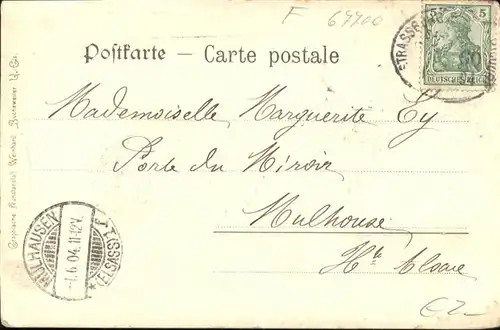 F 64400
Postkarte — Carte postale
STRASSBURG
5 5
DEUTSCHES REICH
Mademoiselle Marguerite Cy
Porte du Miroir
Mulhouse
Hte Alsace
MÜLHAUSEN
1.6.04.11-12V.
* (ELSASS) 1